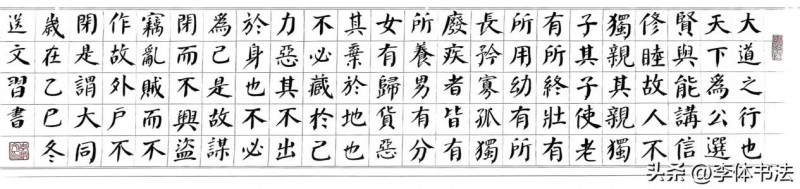 大道之行也
天下為公選
賢與能講信
修睦故人不
獨親其親獨
子其子使老
有所終壯有
所用幼有所
長矜寡孤獨
廢疾者皆有
所養男有分
女有歸貨惡
其棄於地也
不必藏於己
力惡其不出
於身也不必
為己是故謀
閉而不興盜
竊亂賊而不
作故外戶不
閉是謂大同
歲在乙巳冬
送文習書
头条 @李体书法